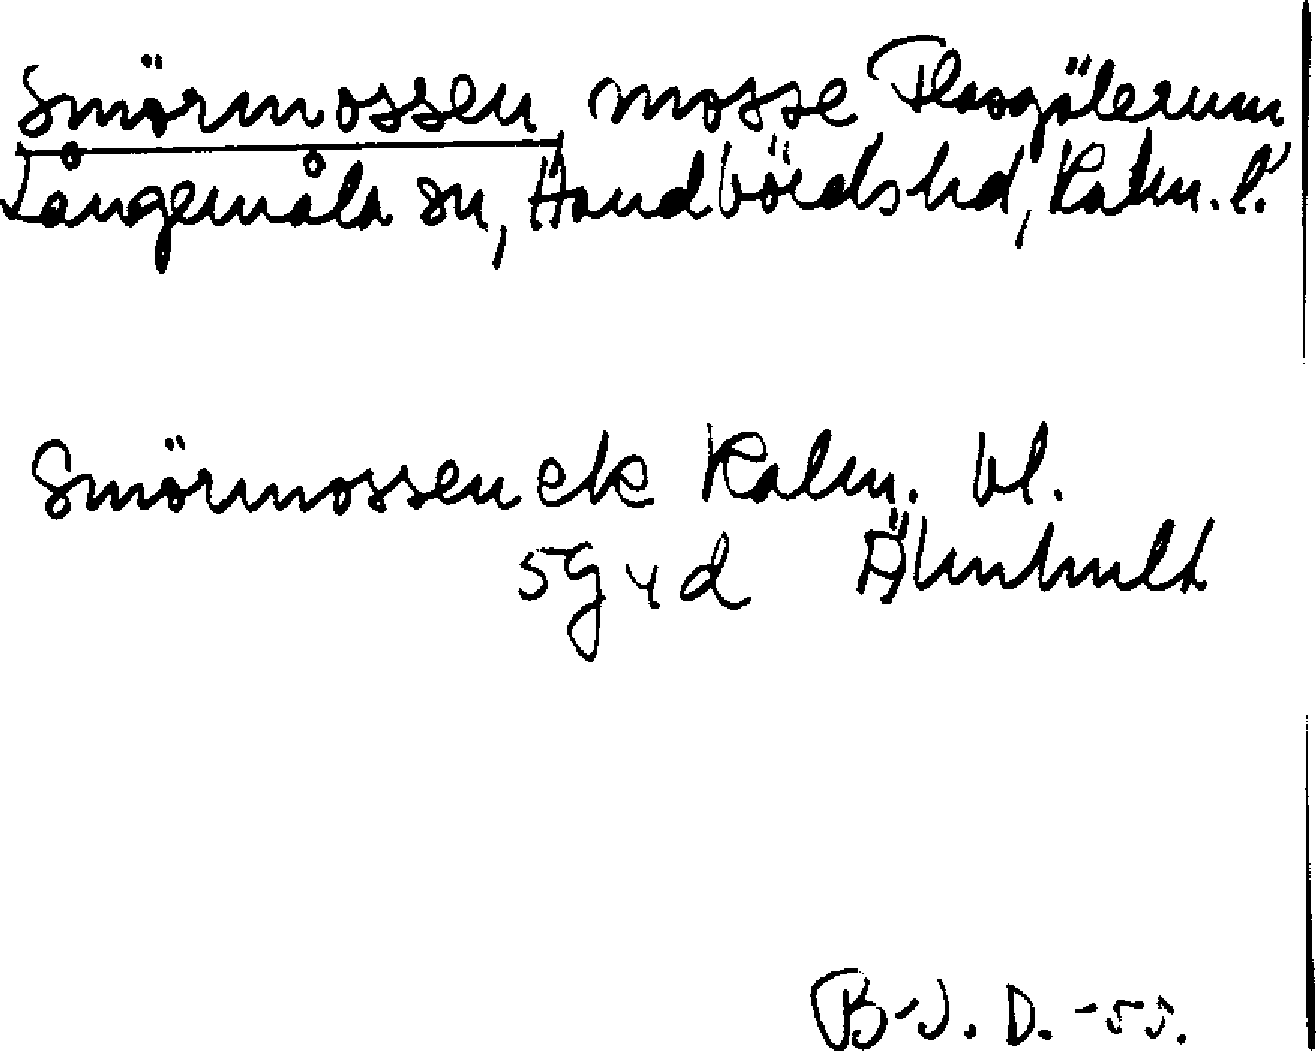 Smörmossen mosse Plaagölerum
Långemåla sn, Handbördshd, Kalm. l.
Smörmossen ek Kalm. bl.
5g 4 d Älmhult
B-J. D. -55.